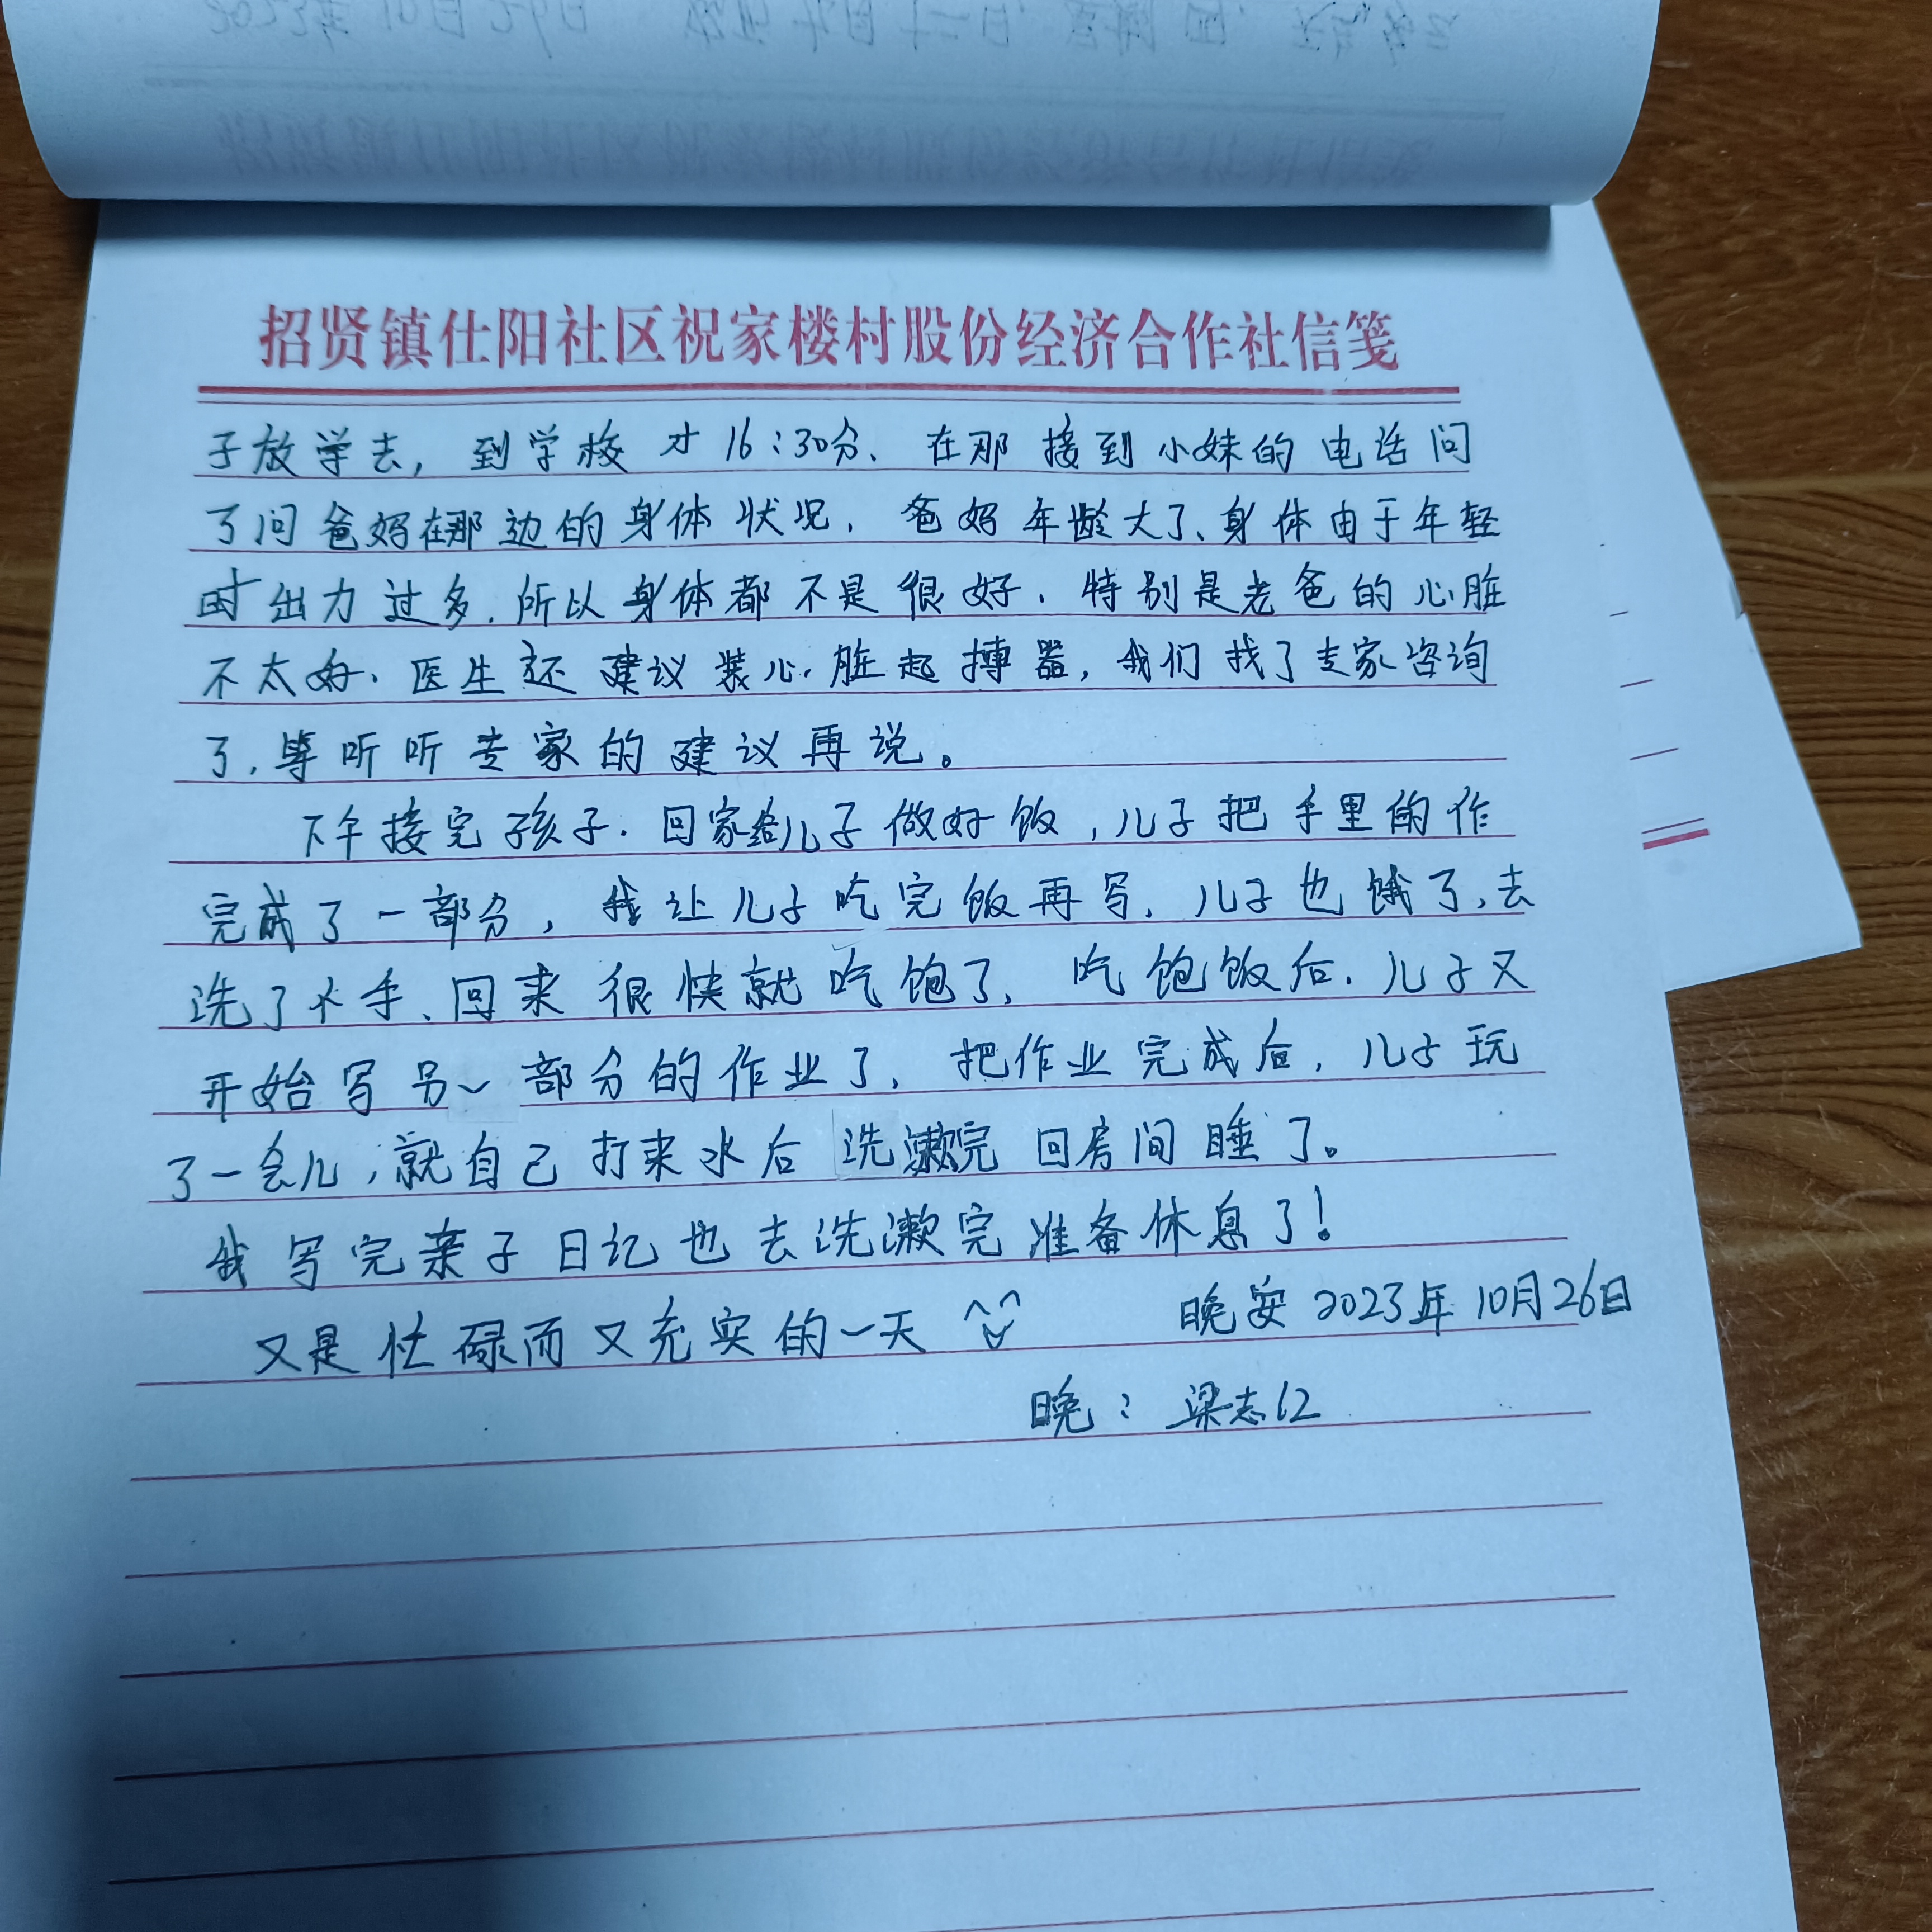 招贤镇仕阳社区祝家楼村股份经济合作社信笺
子放学去，到学校才16:30分、在那接到小妹的电话问
了问爸妈在那边的身体状况，爸妈年龄大了、身体由于年轻
时出力过多，所以身体都不是很好，特别是老爸的心脏
不太好，医生还建议装心脏起搏器，我们找了专家咨询
了，等听听专家的建议再说。
下午接完孩子，回家给儿子做好饭，儿子把手里的作
完成了一部分，我让儿子吃完饭再写，儿子也饿了，去
洗了手、回来很快就吃饱了，吃饱饭后，儿子又
开始写另一部分的作业了，把作业完成后，儿子玩
了一会儿，就自己打来水后洗漱完回房间睡了。
我写完亲子日记也去洗漱完准备休息了！
又是忙碌而又充实的一天 晚安 2023年10月26日
晚：梁志